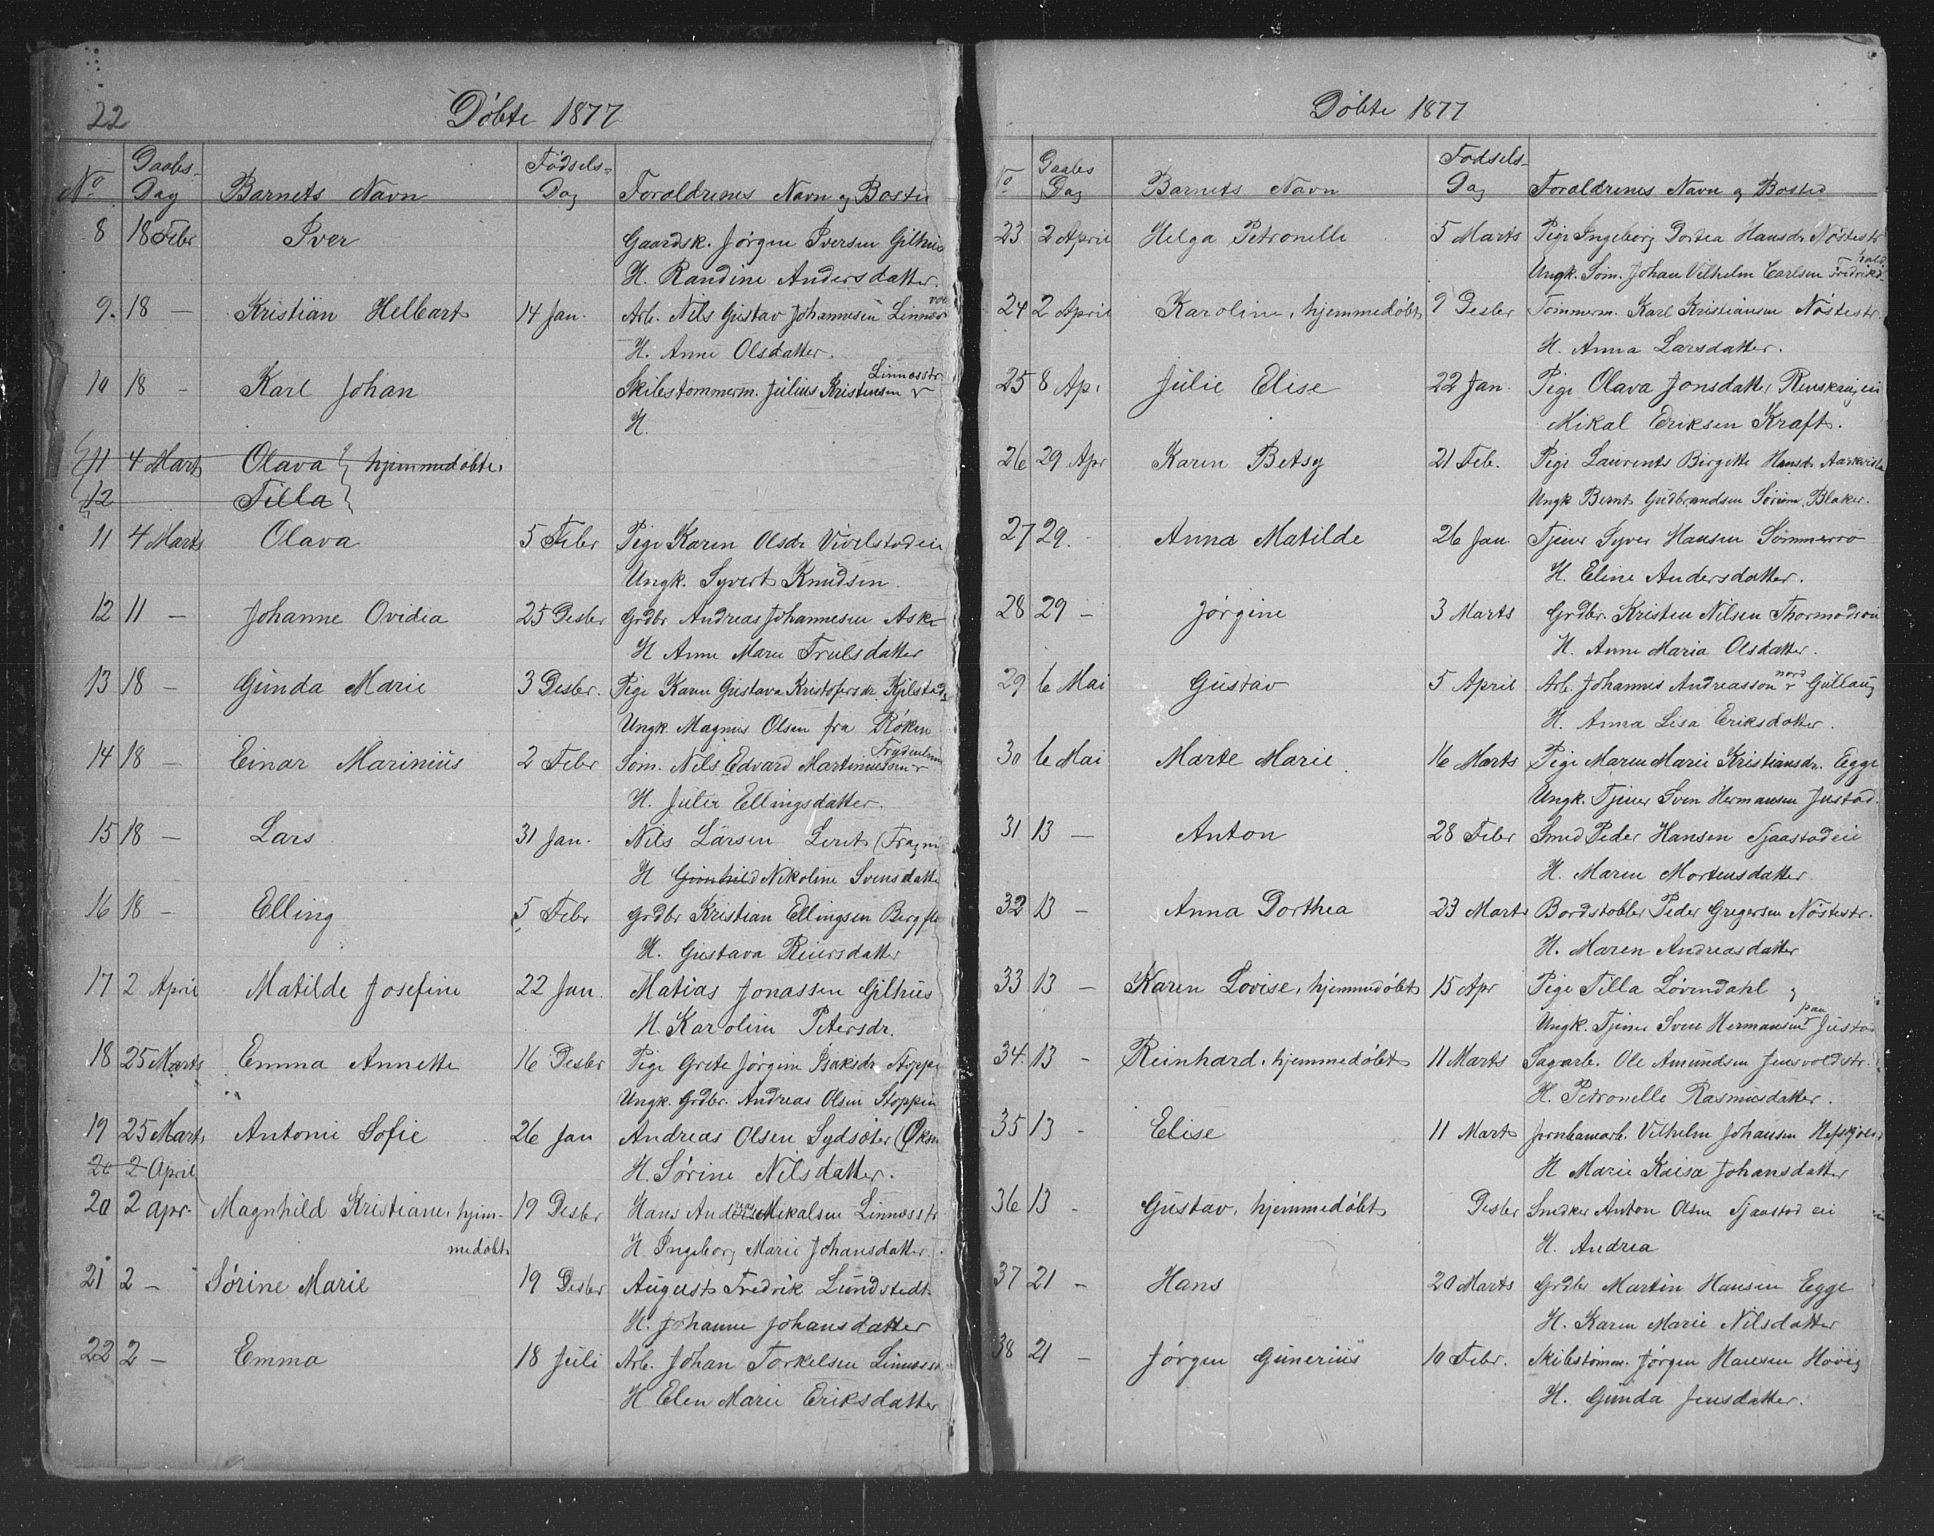 22
Döbte 1877
No Daabs-Dag Barnets Navn Födsels-Dag Foraldrenes Navn og Bosted
8 18 Febr Iver Gaardsk. Jörgen Iversen Gilhus
H. Randine Andersdatter.
9. 18 — Kristian Helbart 14 Jan. Arb. Nils Gustav Johannesen
H. Anne Olsdatter.
10 18 — Karl Johan Skibstømmerm. Julius Kristensen Linnesstr
H.
11 4 Marts Olava } hjemmedøbte.
12 Tilla }
11 4 Marts Olava 5 Febr Pige Karen Olsdr Vivelstadeie
Ungk. Syvert Knudsen.
12 11 — Johanne Ovidia 25 Desbr Grdbr Andreas Johannesen Aske
H Anne Marie Trulsdatter
13 18 — Gunda Marie 3 Desbr. Pige Karen Gustava Kristofersdr.
Ungk. Magnus Olsen fra Röken
14 18 — Einar Marinius 2 Febr Søm. Nils Edvard Martiniussen
H. Julie Ellingsdatter.
15 18 — Lars 31 Jan. Nils Larsen
H Gunhild Nikoline Svensdatte
16 18 — Elling 5 Febr Grdbr Kristian Ellingsen
H. Gustava Reiersdatter
17 2 April Matilde Josefine 22 Jan. Matias Jonassen Gilhus
H. Karoline Petersdr.
18 25 Marts Emma Annette 16 Desbr Pige Grete Jörgine Isaksdr Stoppe
Ungk. Grdbr. Andreas Olsen Stoppen
19 25 Marts Antonie Sofie 26 Jan Andreas Olsen
20 2 April H. Sörine Nilsdatter.
20 2 Apr. Magnhild Kristiane, hjem- 19 Desbr Hans Andreas Mikalsen Linnesstr
medøbt H. Ingeborg Marie Johansdatter.
21 2 — Sörine Marie 19 Desbr August Fredrik Lundstedt
H. Johanne Johansdatter
22 2 — Emma 18 Juli Arb. Johan Torkelsen Linnesstr
H Elen Marie Eriksdatter
Döbte 1877
No Daabs Dag Barnets Navn Fodsels-Dag Foraldrenes Navn og Bosted
23 2 April Helga Petronelle 5 Marts Pige Ingeborg Dortea Hansdr Nöstestr
Ungk. Søm. Johan Vilhelm Carlsen Fredrikshald
24 2 April Karoline, hjemmedöbt 9 Desbr Tømmerm. Karl Kristiansen Nöstestr.
H. Anna Larsdatter.
25 8 Apr Julie Elise 22 Jan. Pige Olava Jonsdatter
Mikal Eriksen Kraft.
26 29 Apr Karen Betsy 21 Feb. Pige Laurents Birgitte Hansdr
Ungk Bernt Gudbrandsen Sörum, Blaker.
27 29. Anna Matilde 26 Jan. Tjener Syver Hansen Sommerro
H. Eline Andersdatter.
28 29 — Jörgine 3 Marts Grdbr Kristen Nilsen
H. Anne Maria Olsdatter.
29 6 Mai Gustav 5 April Arb. Johannes Andreasson nord Gullaug
H. Anna Lisa Eriksdatter.
30 6 Mai Marte Marie 16 Marts Pige Maren Marie Kristiansdr. Egge
Ungk. Tjener Sven Hermansen Justad.
31 13 — Anton 28 Febr Smed Peder Hansen Sjaastadeie
H. Maren Mortensdatter
32 13 — Anna Dorthea 23 Marts Bordstabler Peder Gregersen Nöstestr.
H. Maren Andreasdatter
33 13 — Karen Lovise, hjemmedöbt 15 Apr Pige Tilla Lövendahl
Ungk. Tjener Sven Hermansen paa Justad
34. 13 — Reinhard, hjemmedöbt 11 Marts Sagarb. Ole Amundsen Jensvoldstr.
H. Petronelle Rasmusdatter.
35 13 — Elise 11 Marts Jernbanearb. Vilhelm Johansen
H Marie Kaisa Johansdatter
36 13 — Gustav, hjemmedöbt Desbr Snedker Anton Olsen Sjaastad eie
H. Andrea
37 21 — Hans 20 Marts Grdbr Martin Hansen Egge
H. Karen Marie Nilsdatter
38 21 — Jörgen Gunerius 10 Febr. Skibstømm. Jörgen Hansen Hövig
H. Gunda Jensdatter.